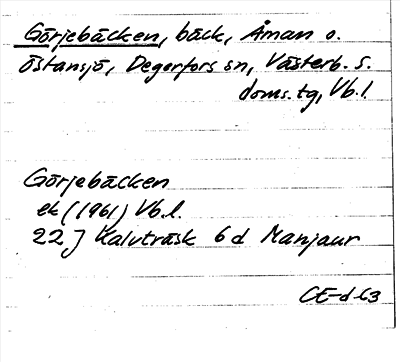 Görjebäcken, bäck, Åman o.
Östansjö, Degerfors sn, Västerb. s.
doms.tg, Vb.l.
Görjebäcken
ek (1961) Vb.l.
22 J Kalvträsk 6d Manjaur
CE-d 63